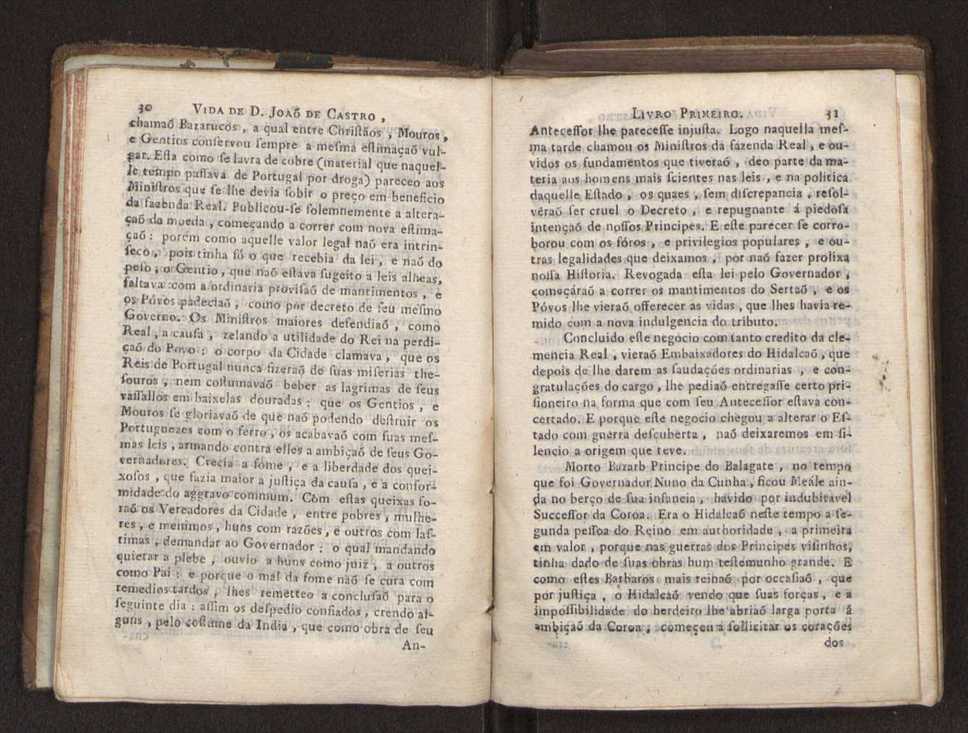 30 VIDA DE D. JOAÕ DE CASTRO ,
chamaõ Bazarucos , a qual entre Chriſtãos , Mouros ,
e Gentios conſervou ſempre a meſma eſtimaçaõ vul-
gar. Eſta como ſe lavra de cobre (material que naquel-
le tempo paſſava de Portugal por droga) pareceo aos
Miniſtros que ſe lhe devia ſobir o preço em beneficio
da fazenda Real. Publicou-ſe ſolemnemente a altera-
çaõ da moeda , começando a correr com nova eſtima-
çaõ : porém como aquelle valor legal naõ era intrin-
ſeco , pois tinha ſó o que recebia da lei , e naõ do
peſo , o Gentio , que naõ eſtava ſugeito a leis alheas,
faltava com a ordinaria proviſaõ de mantimentos , e
os Póvos padeciaõ , como por decreto de ſeu meſmo
Governo. Os Miniſtros maiores defendiaõ , como
Real , a cauſa , zelando a utilidade do Rei na perdi-
çaõ do Povo : o corpo da Cidade clamava , que os
Reis de Portugal nunca fizeraõ de ſuas miſerias the-
ſouros , nem coſtumavaõ beber as lagrimas de ſeus
vaſſallos em baixelas douradas : que os Gentios , e
Mouros ſe gloriavaõ de que naõ podendo deſtruir os
Portuguezes com o ferro , os acabavaõ com ſuas meſ-
mas leis , armando contra elles a ambiçaõ de ſeus Go-
vernadores. Crecia a fome , e a liberdade dos quei-
xoſos , que fazia maior a juſtiça da cauſa , e a confor-
midade do aggravo commum. Com eſtas queixas fo-
raõ os Vereadores da Cidade , entre pobres , mulhe-
res , e meninos , huns com razões , e outros com laſ-
timas , demandar ao Governador : o qual mandando
quietar a plebe , ouvio a huns como juiz , a outros
como Pai : e porque o mal da fome naõ ſe cura com
remedios tardos , lhes remetteo a concluſaõ para o
ſeguinte dia : aſſim os deſpedio confiados , crendo al-
guns , pelo coſtume da India , que como obra de ſeu
An-
LIVRO PRIMEIRO. 31
Anteceſſor lhe pareceſſe injuſta. Logo naquella meſ-
ma tarde chamou os Miniſtros da fazenda Real , e ou-
vidos os fundamentos que tiveraõ , deo parte da ma-
teria aos homens mais ſcientes nas leis , e na politica
daquelle Eſtado , os quaes , ſem diſcrepancia , reſol-
vêraõ ſer cruel o Decreto , e repugnante á piedoſa
intençaõ de noſſos Principes. E eſte parecer ſe corro-
borou com os fóros , e privilegios populares , e ou-
tras legalidades que deixamos , por naõ fazer prolixa
noſſa Hiſtoria. Revogada eſta lei pelo Governador ,
começáraõ a correr os mantimentos do Sertaõ , e os
Póvos lhe vieraõ offerecer as vidas , que lhes havia re-
mido com a nova indulgencia do tributo.
Concluido eſte negocio com tanto credito da cle-
mencia Real , vieraõ Embaixadores do Hidalcaõ , que
depois de lhe darem as ſaudações ordinarias , e con-
gratulações do cargo , lhe pediaõ entregaſſe certo pri-
ſioneiro na forma que com ſeu Anteceſſor eſtava con-
certado. E porque eſte negocio chegou a alterar o Eſ-
tado com guerra deſcuberta , naõ deixaremos em ſi-
lencio a origem que teve.
Morto Bazarb Principe do Balagate , no tempo
que foi Governador Nuno da Cunha , ficou Meále ain-
da no berço de ſua infancia , havido por indubitavel
Succeſſor da Coroa. Era o Hidalcaõ neſte tempo a ſe-
gunda peſſoa do Reino em authoridade , a primeira
em valor , porque nas guerras dos Principes viſinhos,
tinha dado de ſuas obras hum teſtemunho grande. E
como eſtes Barbaros mais reinaõ por occaſiaõ , que
por juſtiça , o Hidalcaõ vendo que ſuas forças , e a
impoſſibilidade do herdeiro lhe abriaõ larga porta á
ambiçaõ da Coroa , começou a ſollicitar os corações
dos